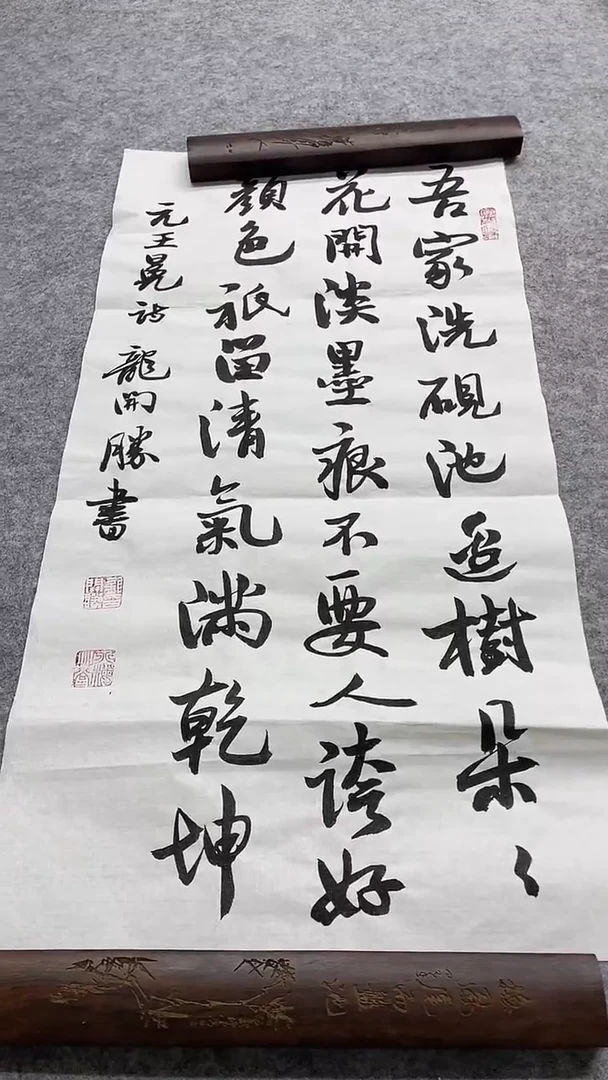 吾家洗硯池邊樹朵々
花開淡墨痕不要人誇好
顏色祇留清氣滿乾坤
元王冕詩 龍開勝書